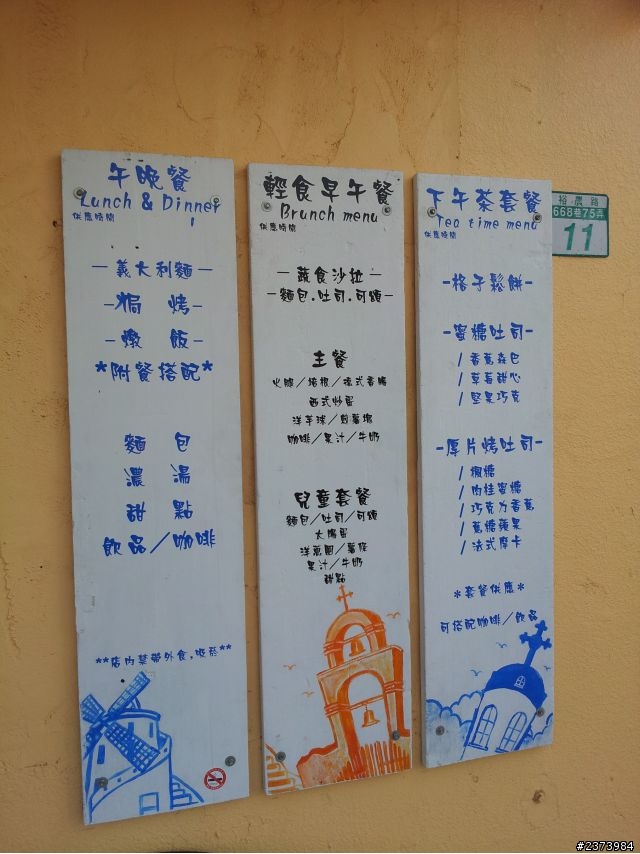 午晚餐
Lunch & Dinner
供應時間
一義大利麵一
-焗 烤-
-燉 飯-
*附餐搭配*
麵 包
濃 湯
甜 點
飲品/咖啡
**店內禁帶外食,吸菸**
輕食早午餐
Brunch menu
供應時間
一蔬食沙拉一
-麵包.吐司.可頌-
主餐
火腿/培根/德式香腸
西式炒蛋
洋芋球/煎薯塊
咖啡/果汁/牛奶
兒童套餐
麵包/吐司/可頌
太陽蛋
洋蔥圈/薯條
果汁/牛奶
甜點
下午茶套餐
Tea time menu
供應時間
-格子鬆餅-
-蜜糖吐司-
/香蕉森巴
/草莓甜心
/堅果巧克
-厚片烤吐司-
/楓糖
/肉桂蜜糖
/巧克力香蕉
/蕉糖蘋果
/法式摩卡
*套餐供應*
可搭配咖啡/飲品
裕農路
668巷75弄
11
#2373984